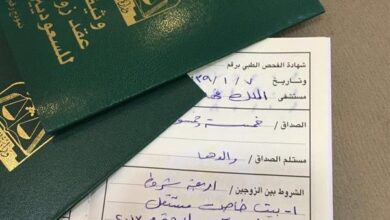 عقد زو
للسعوديي
شهادة الفحص الطبي برقم
وتاريخ ٧ / ١ / ٣٩
مستشفى الملك
الصداق / خمسة وخمسو
مستلم الصداق / والدها
الشروط بين الزوجين / اربعة شروط
١- بيت خاص مستقل